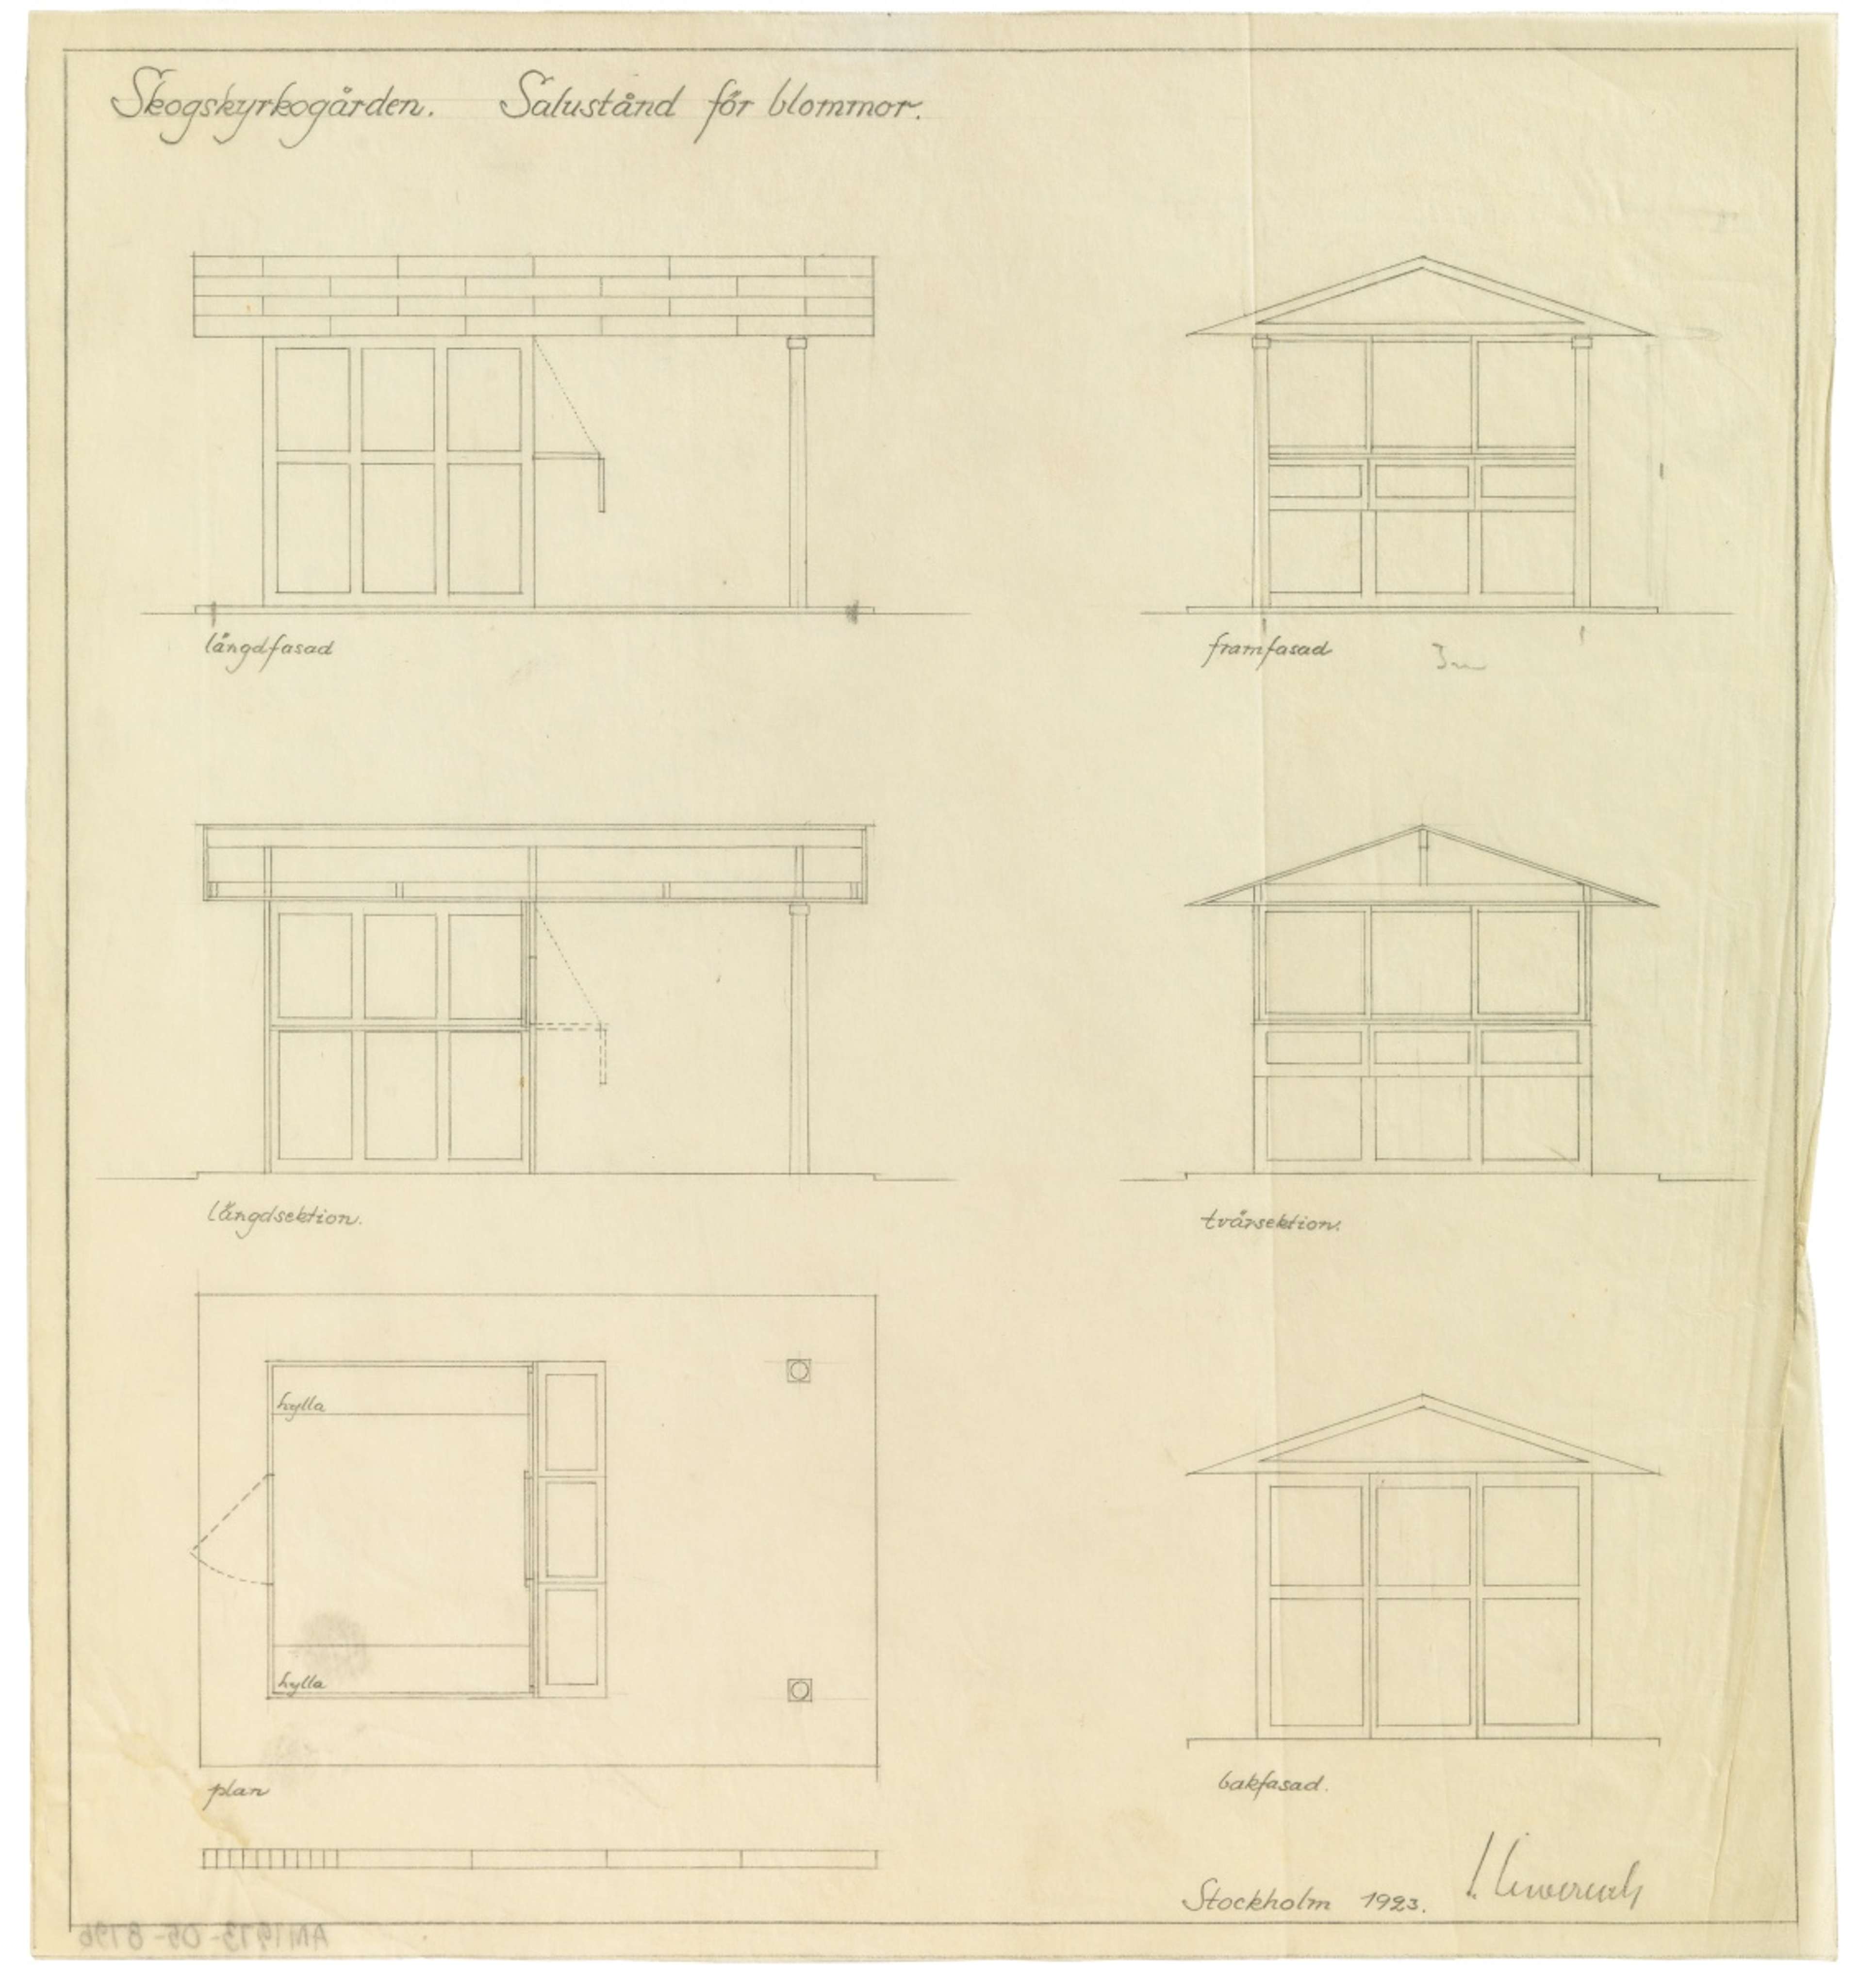 Skogskyrkogården. Salustånd för blommor.
längdfasad
framfasad
3m
längdsektion.
tvärsektion.
hylla
hylla
plan
bakfasad.
Stockholm 1923. S. Lewerentz
AM1973-05-8796